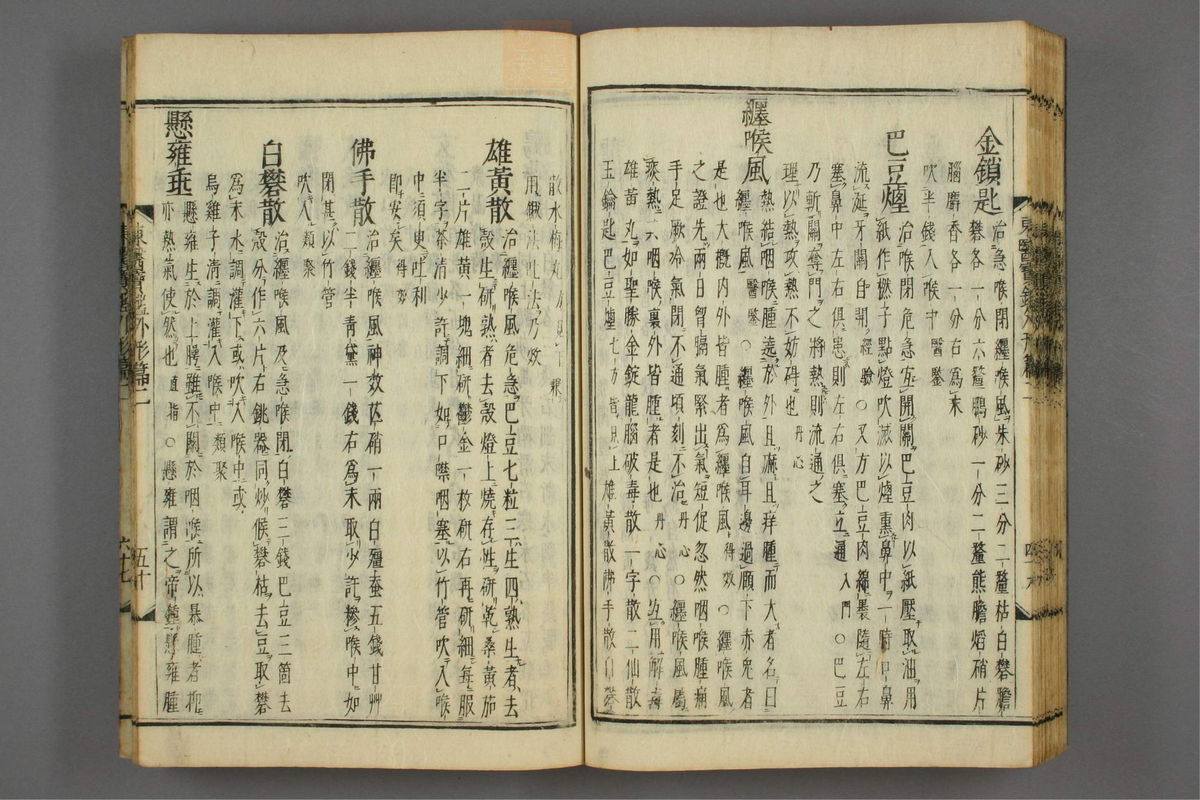 金鎖匙 治急喉閉纏喉風朱砂三分二釐枯白礬膽
礬各一分六釐鵬砂一分二釐熊膽焰硝片
腦麝香各一分右爲末
吹半錢入喉中 醫鑒
巴豆煙 治喉閉危急宜開關巴豆肉以紙壓取油用
紙作撚子點燈吹滅以煙熏鼻中一時口鼻
流涎牙關自開 經驗 ○又方巴豆肉綿裹隨左右
塞鼻中左右俱患則左右俱塞立通 入門 ○巴豆
乃斬關奪門之將熱則流通之
理以熱攻熱不妨碍也 丹心
纏喉風 熱結咽喉腫遶於外且麻且痒腫而大者名曰
纏喉風 醫鑒 ○纏喉風自耳邊過頤下赤色者
是也大概內外皆腫者爲纏喉風 得效 ○纏喉風
之證先兩日胷膈氣緊出氣短促忽然咽喉腫痛
手足厥冷氣閉不通頃刻不治 丹心 ○纏喉風屬
痰熱咽喉裏外皆腫者是也 丹心 ○宜用解毒
雄黃丸如聖勝金錠龍腦破毒散一字散二仙散
玉鑰匙巴豆煙七方皆見上雄黃散佛手散白礬
散水梅丸
用鵝法吐法乃效
雄黃散 治纏喉風危急巴豆七粒三生四熟生者去
殼生研熟者去殼燈上燒存性研乾桑黃茄
二片雄黃一塊細研鬱金一枚研右再研細每服
半字茶淸少許調下如口噤咽塞以竹管吹入喉
中須臾吐利
卽安矣 得效
佛手散 治纏喉風神效芒硝一兩白殭蚕五錢甘艸
二錢半靑黛一錢右爲末取少許摻喉中如
閉甚以竹管
吹入 類聚
白礬散 治纏喉風及急喉閉白礬三錢巴豆三箇去
殼分作六片右銚器同炒候礬枯去豆取礬
爲末水調灌下或吹入喉中或
烏雞子淸調灌入喉中 類聚
懸雍垂 懸雍生於上腭雖不關於咽喉所以暴腫者抑
亦熱氣使然也 直指 ○懸雍謂之帝鍾懸雍腫
東醫寶鑑外形篇二
五十